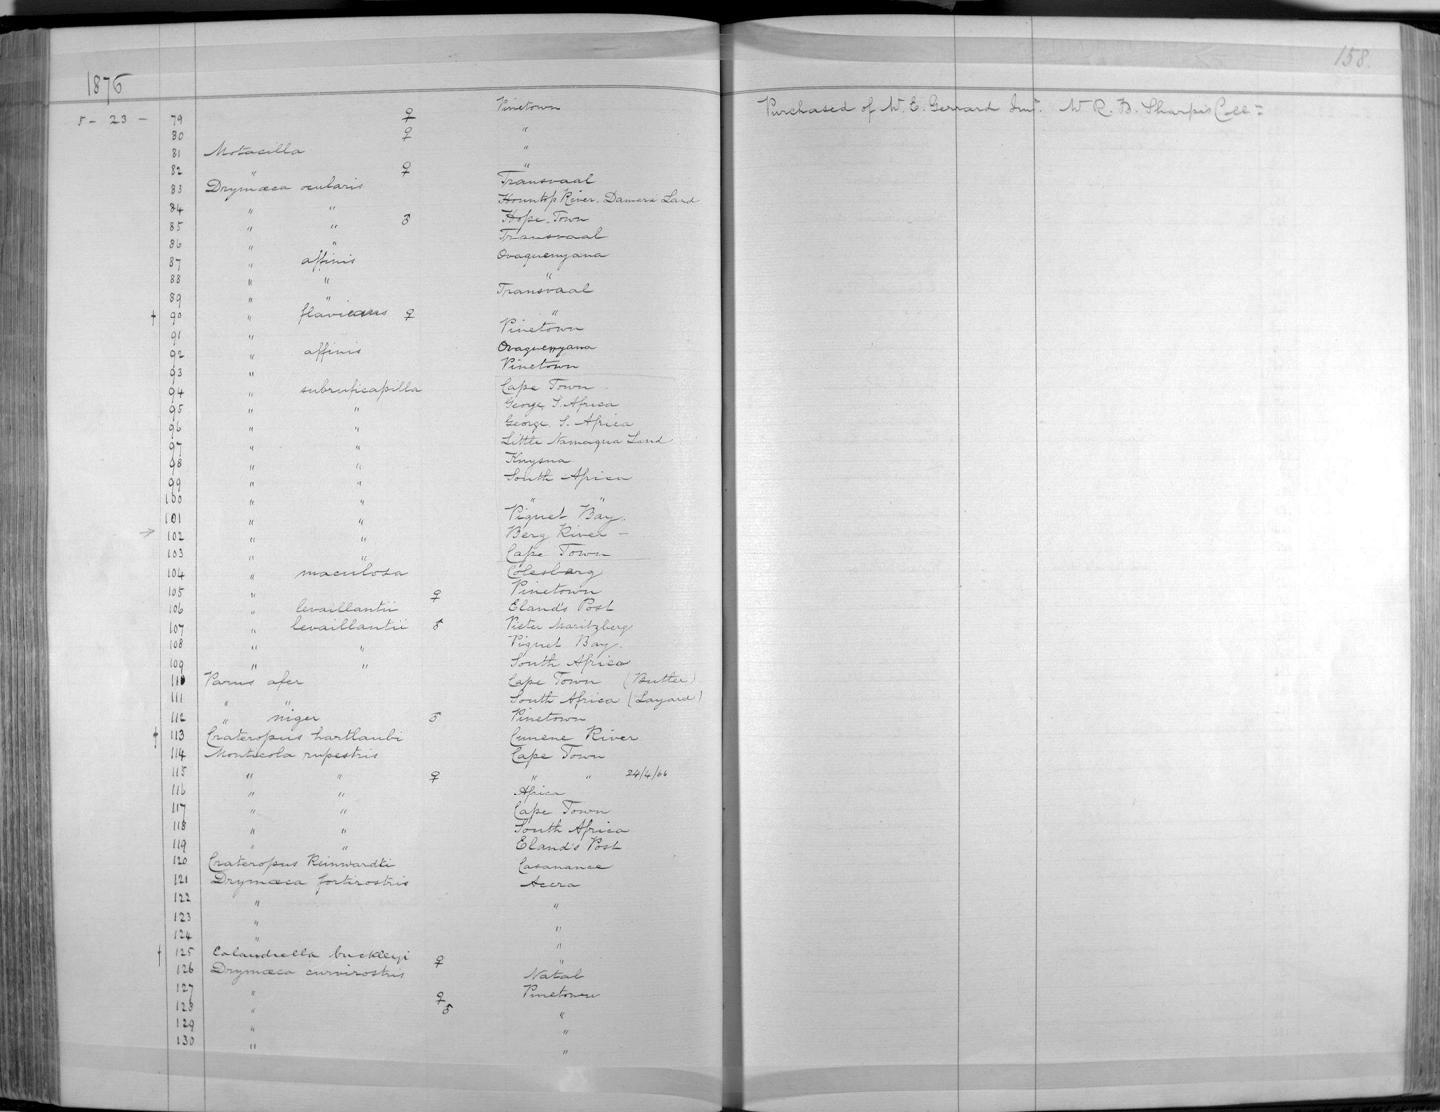 158.
1876
5 - 23 - 79 ♀ Pinetown Purchased of W. E. Gerrard Junr. W R. B. Sharpe's Coll=
80 ♀ "
81 Motacilla "
82 " ♀ "
83 Drymæca ocularis Transvaal
84 " " River. Damara Land
85 " " ♂ Hope Town
86 " " Transvaal
87 " affinis Ovaquenyana
88 " " "
89 " " Transvaal
90 " flavicans ♀ "
91 " Pinetown
92 " affinis Ovaquenyana
93 " Pinetown
94 " subruficapilla Cape Town
95 " " George, S. Africa
96 " " George. S. Africa
97 " " Little Namaqua Land
98 " " Knysna
99 " " South Africa
100 " " " "
101 " " Piquet Bay.
102 " " Berg River -
103 " " Cape Town
104 " maculosa Colesberg
105 " ♀ Pinetown
106 " levaillantii Eland's Post
107 " levaillantii ♂ Pieter Maritzberg
108 " " Piquet Bay.
109 " " South Africa
110 Parus afer Cape Town (Butler)
111 " " South Africa (Layard)
112 " niger ♂ Pinetown
† 113 Crateropus hartlaubi Cunene River
114 Monticola rupestris Cape Town
115 " " ♀ " " 24/4/66
116 " " Africa
117 " " Cape Town
118 " " South Africa
119 " " Eland's Post
120 Crateropus Reinwardti Casamance
121 Drymæca fortirostris Accra
122 " "
123 " "
124 " "
† 125 Calandrella buckleyi ♀ "
126 Drymæca curvirostris Natal
127 " ♀ Pinetown
128 " ♂ "
129 " "
130 " "